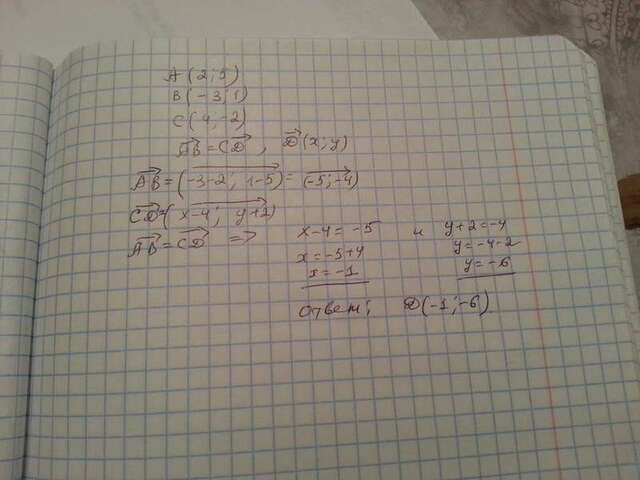 A (2; 5)
B (-3; 1)
C (4; -2)
AB = CD, D (x; y)
AB = (-3-2; 1-5) = (-5; -4)
CD = (x-4; y+2)
AB = CD => x-4 = -5 и y+2 = -4
x = -5+4 y = -4-2
x = -1 y = -6
Ответ: D (-1; -6)